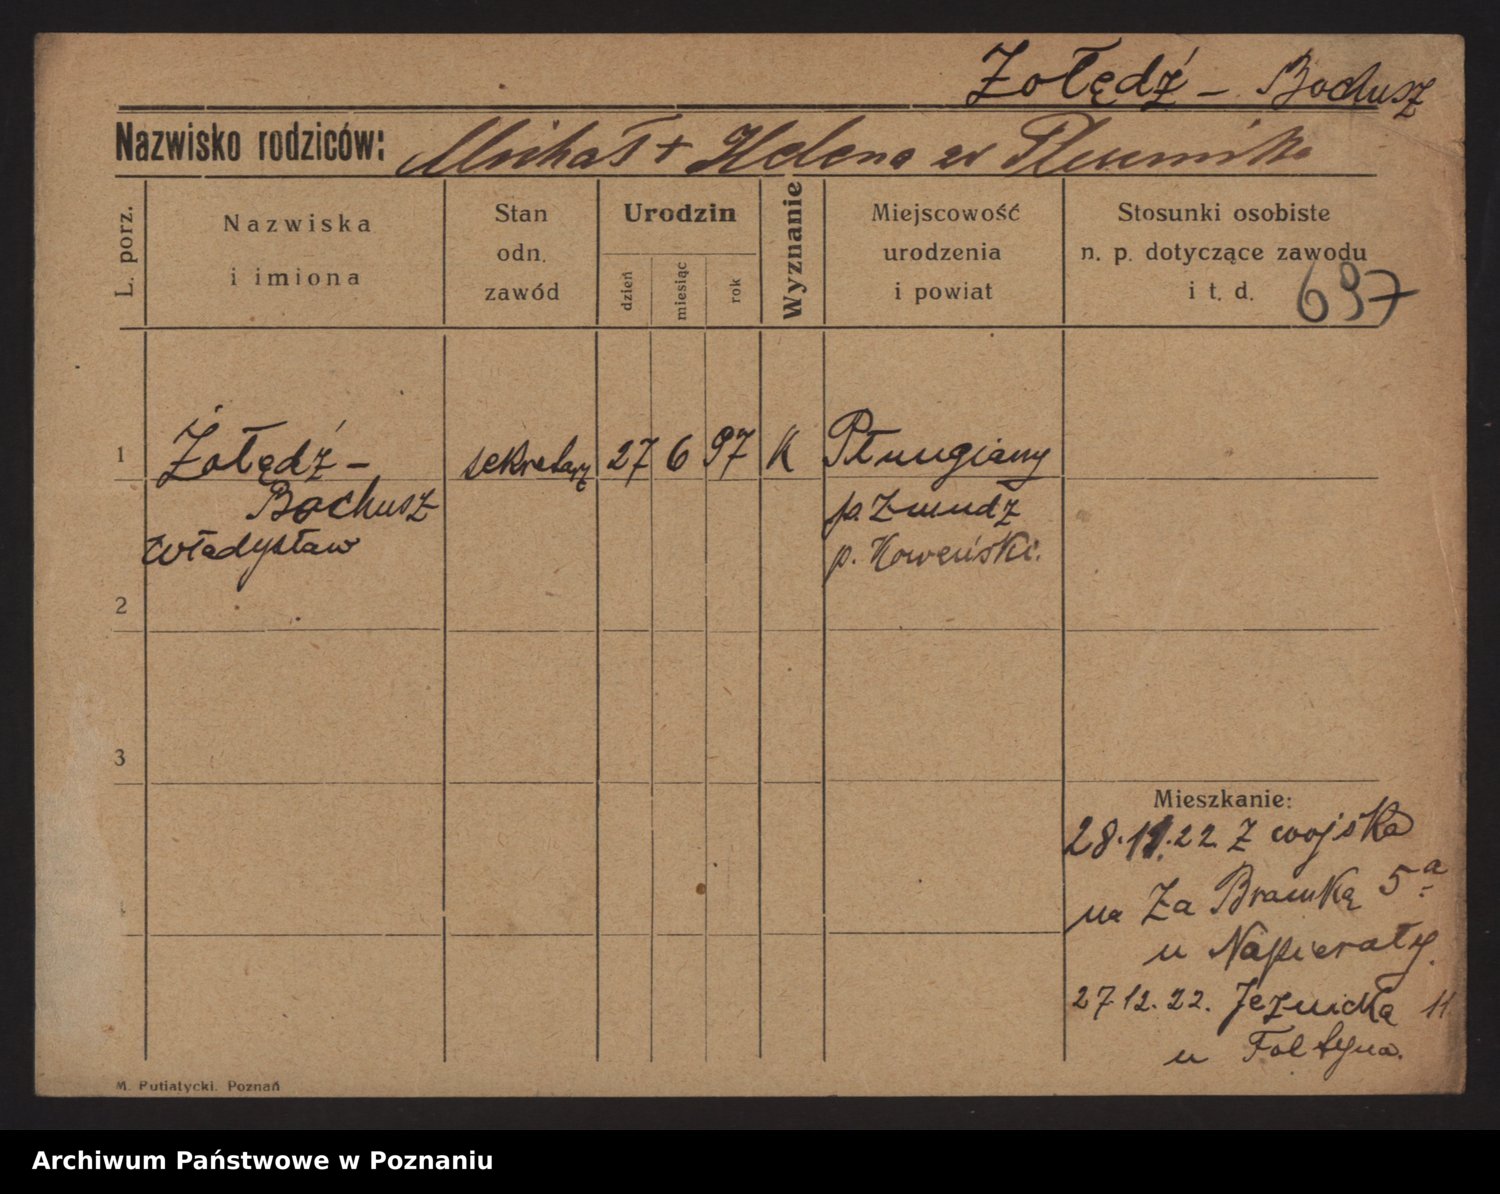 Żołędź - Bochusz
Nazwisko rodziców: Michał + Helena zd
L. porz.
Nazwiska i imiona
Stan odn. zawód
Urodzin
dzień
miesiąc
rok
Wyznanie
Miejscowość urodzenia i powiat
Stosunki osobiste
n. p. dotyczące zawodu
i t. d.
697
1 Żołędź - sekretarz 27 6 97 K Płungiany
Bochusz p. Żmudź
Władysław p. Koweński.
2
3
Mieszkanie:
28.11.22 z wojska
na Za Bramką 5a
u Napierały.
27.12.22. Jezuicka 11
u Foltyna.
M. Putiatycki. Poznań
Archiwum Państwowe w Poznaniu